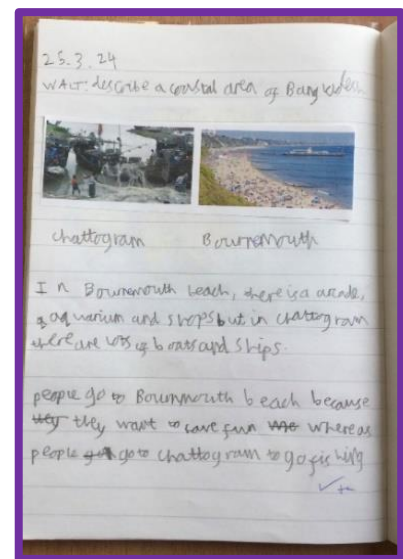 25.3.24
WALT: describe a coastal area of Bangladesh
Chattogram Bournemouth
In Bournemouth beach, there is a arcade,
aquarium and shops but in chattogram
there are lots of boats and ships.
people go to Bournmouth beach because
they they want to have fun whereas
people go to chattogram to go fishing